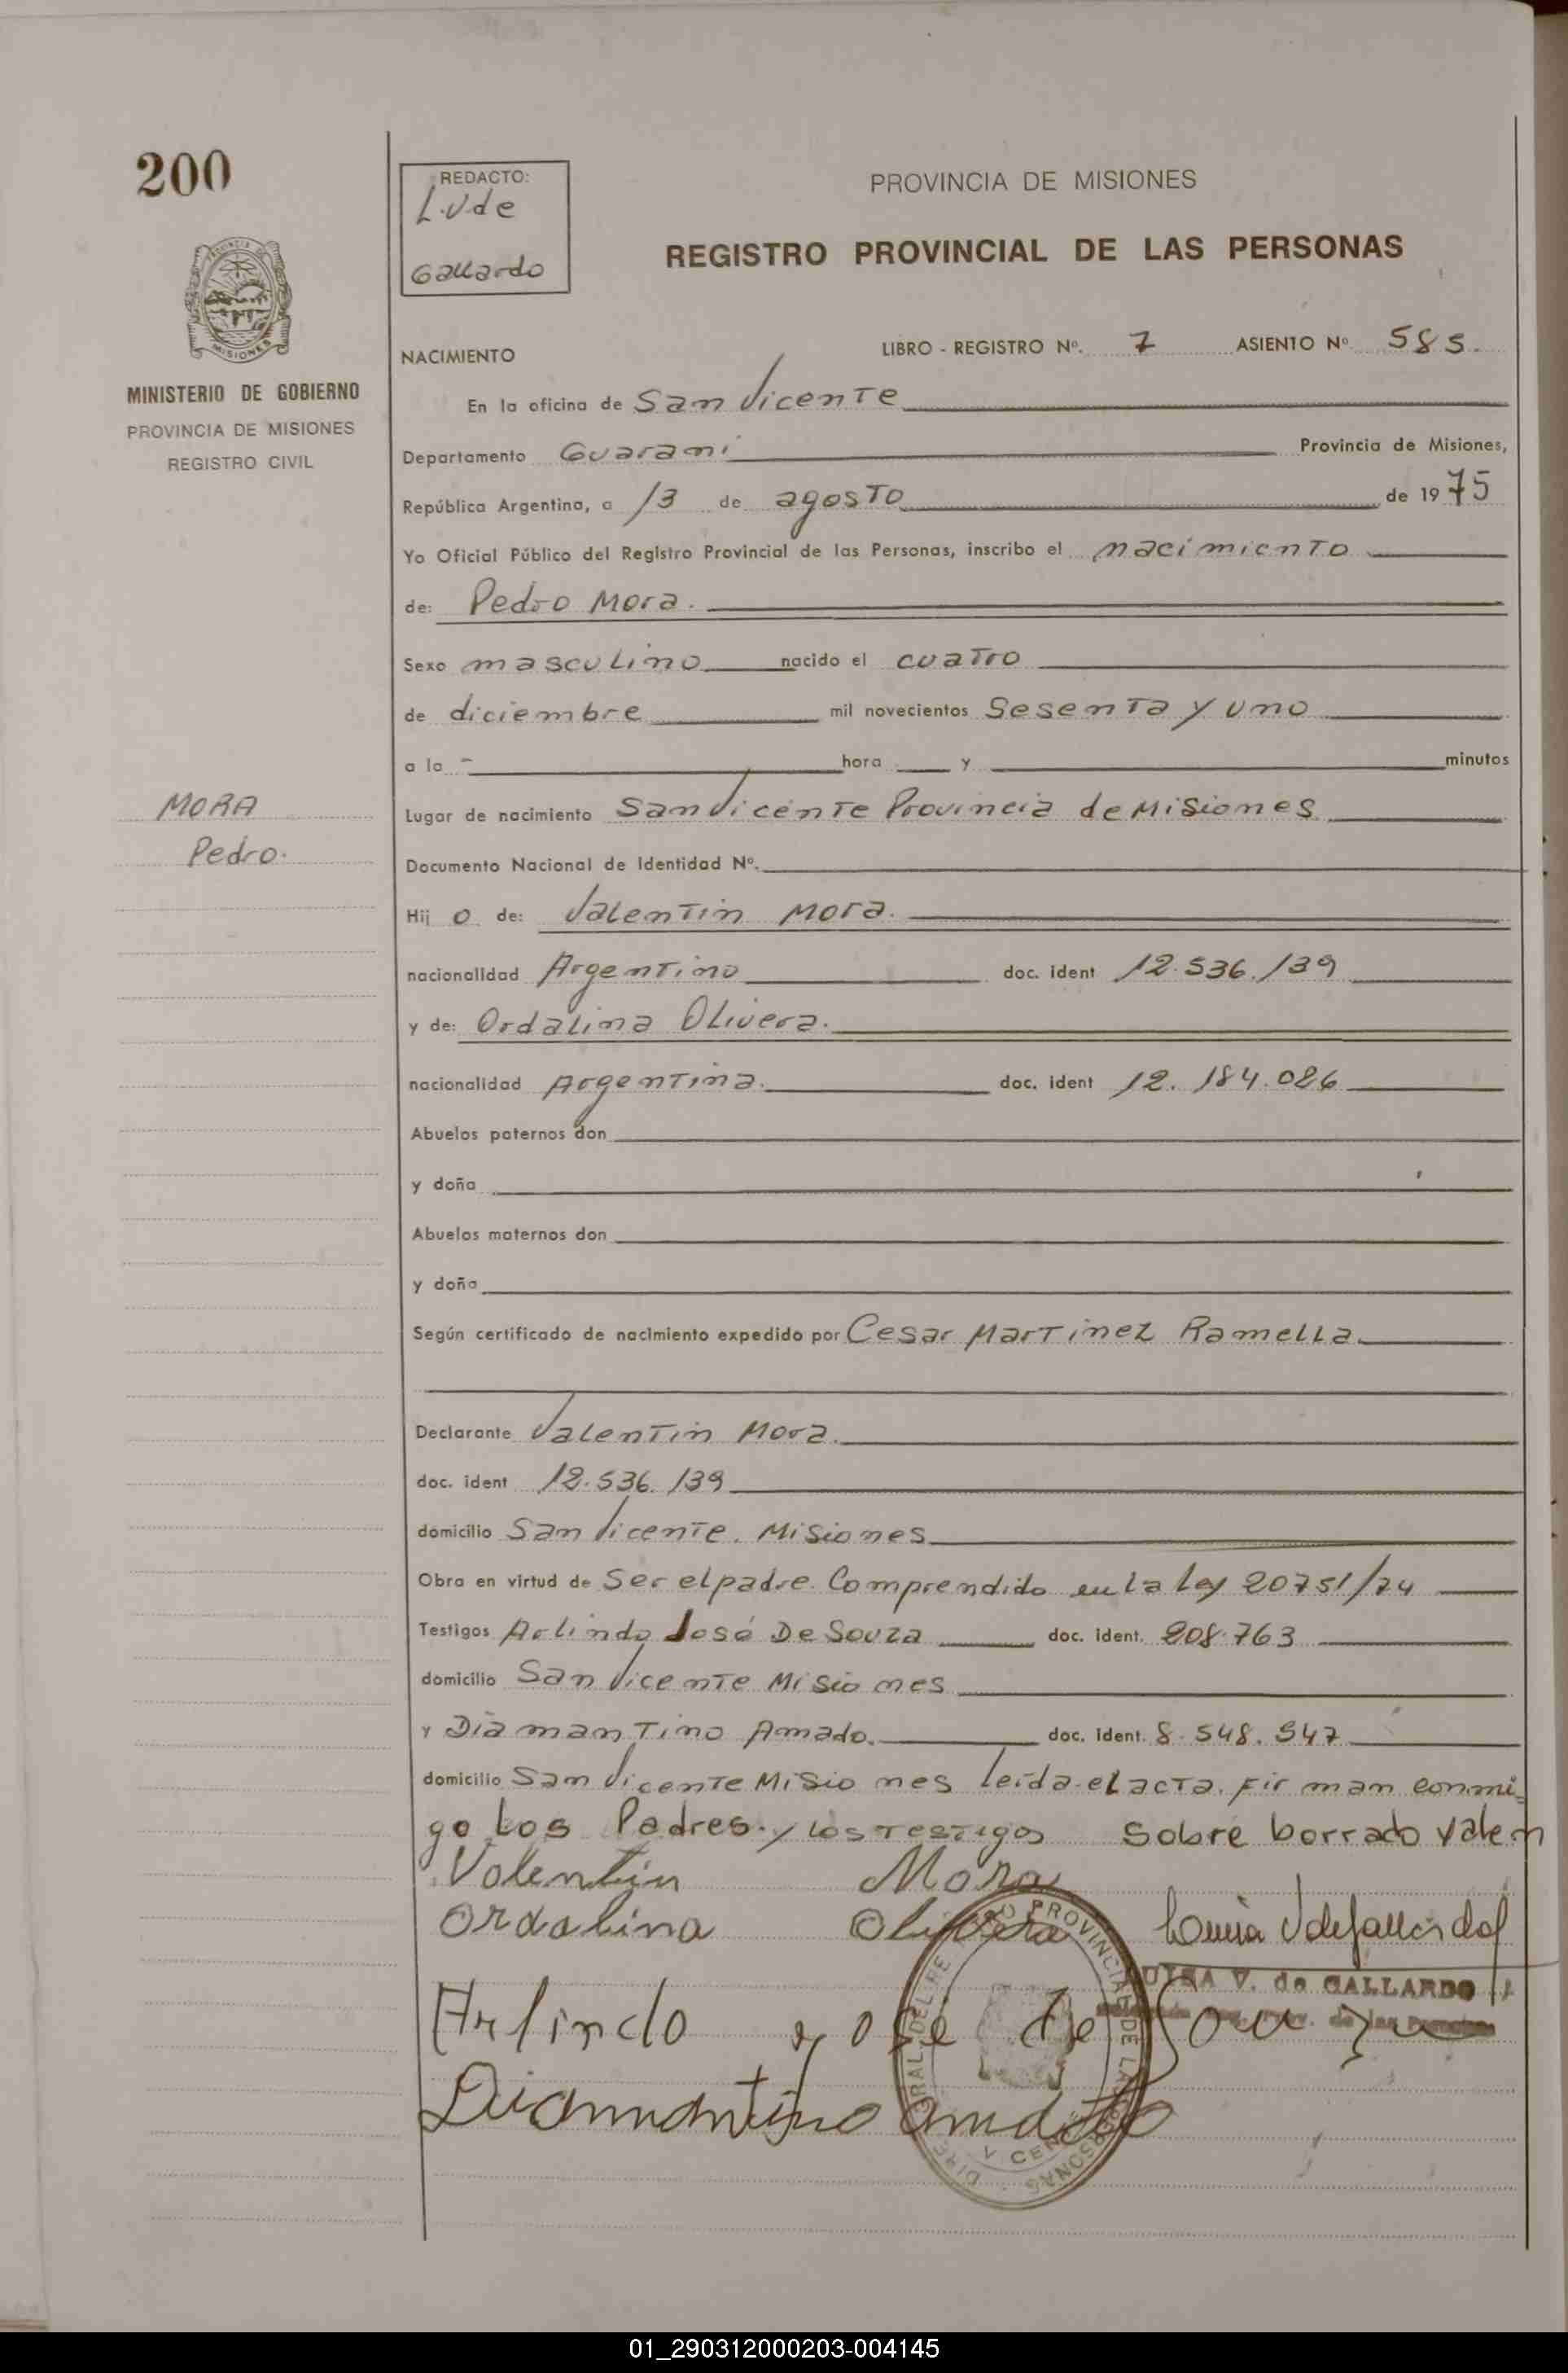 200
REDACTO:
L.V de
Gallardo
PROVINCIA DE MISIONES
REGISTRO PROVINCIAL DE LAS PERSONAS
MISIONES
MINISTERIO DE GOBIERNO
PROVINCIA DE MISIONES
REGISTRO CIVIL
NACIMIENTO
LIBRO - REGISTRO Nº. 7 ASIENTO Nº 585.
En la oficina de San Vicente
Departamento Guarani Provincia de Misiones,
República Argentina, a 13 de agosto de 1975
Yo Oficial Público del Registro Provincial de las Personas, inscribo el nacimiento
de: Pedro Mora.
Sexo masculino nacido el cuatro
de diciembre mil novecientos Sesenta y uno
a la - hora y minutos
MORA
Pedro.
Lugar de nacimiento San Vicente Provincia de Misiones
Documento Nacional de Identidad Nº.
Hij o de: Valentin Mora.
nacionalidad Argentino doc. ident 12.536.139
y de: Ordalina Olivera.
nacionalidad Argentina. doc. ident 12.184.026
Abuelos paternos don
y doña
Abuelos maternos don
y doña
Según certificado de nacimiento expedido por Cesar Martinez Ramella.
Declarante Valentin Mora.
doc. ident 12.536.139
domicilio San Vicente. Misiones
Obra en virtud de Ser el padre. Comprendido en la Ley 20751/74
Testigos Arlindo José De Souza doc. ident. 208.763
domicilio San Vicente Misiones
y Diamantino Amado. doc. ident. 8.548.547
domicilio San Vicente Misiones leida el acta. Firman conmi=
go Los Padres. y los testigos Sobre borrado Valen
Valentin Mora
Ordalina Olivera
V. de GALLARDO
Arlindo jose de Souza
Diamantino amado
01_290312000203-004145